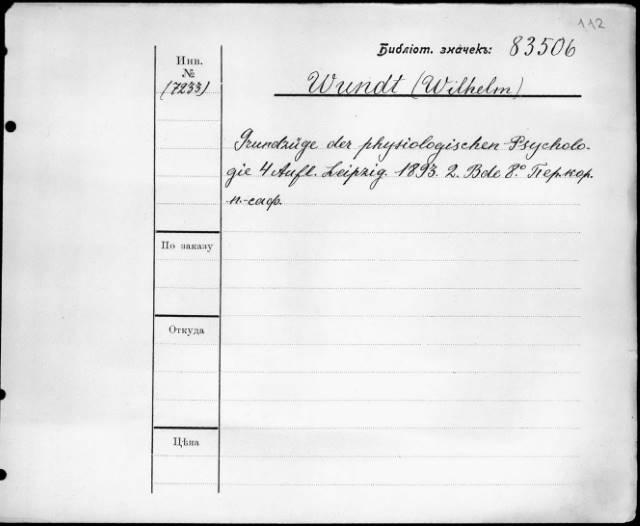 112
Библіот. значекъ: 83506
Инв.
№
(7233)
Wundt (Wilhelm)
Grundzüge der physiologischen Psycholo-
gie 4 Aufl. Leipzig. 1893. 2. Bde 8.° Пер. кор.
п.-саф.
По заказу
Откуда
Цѣна